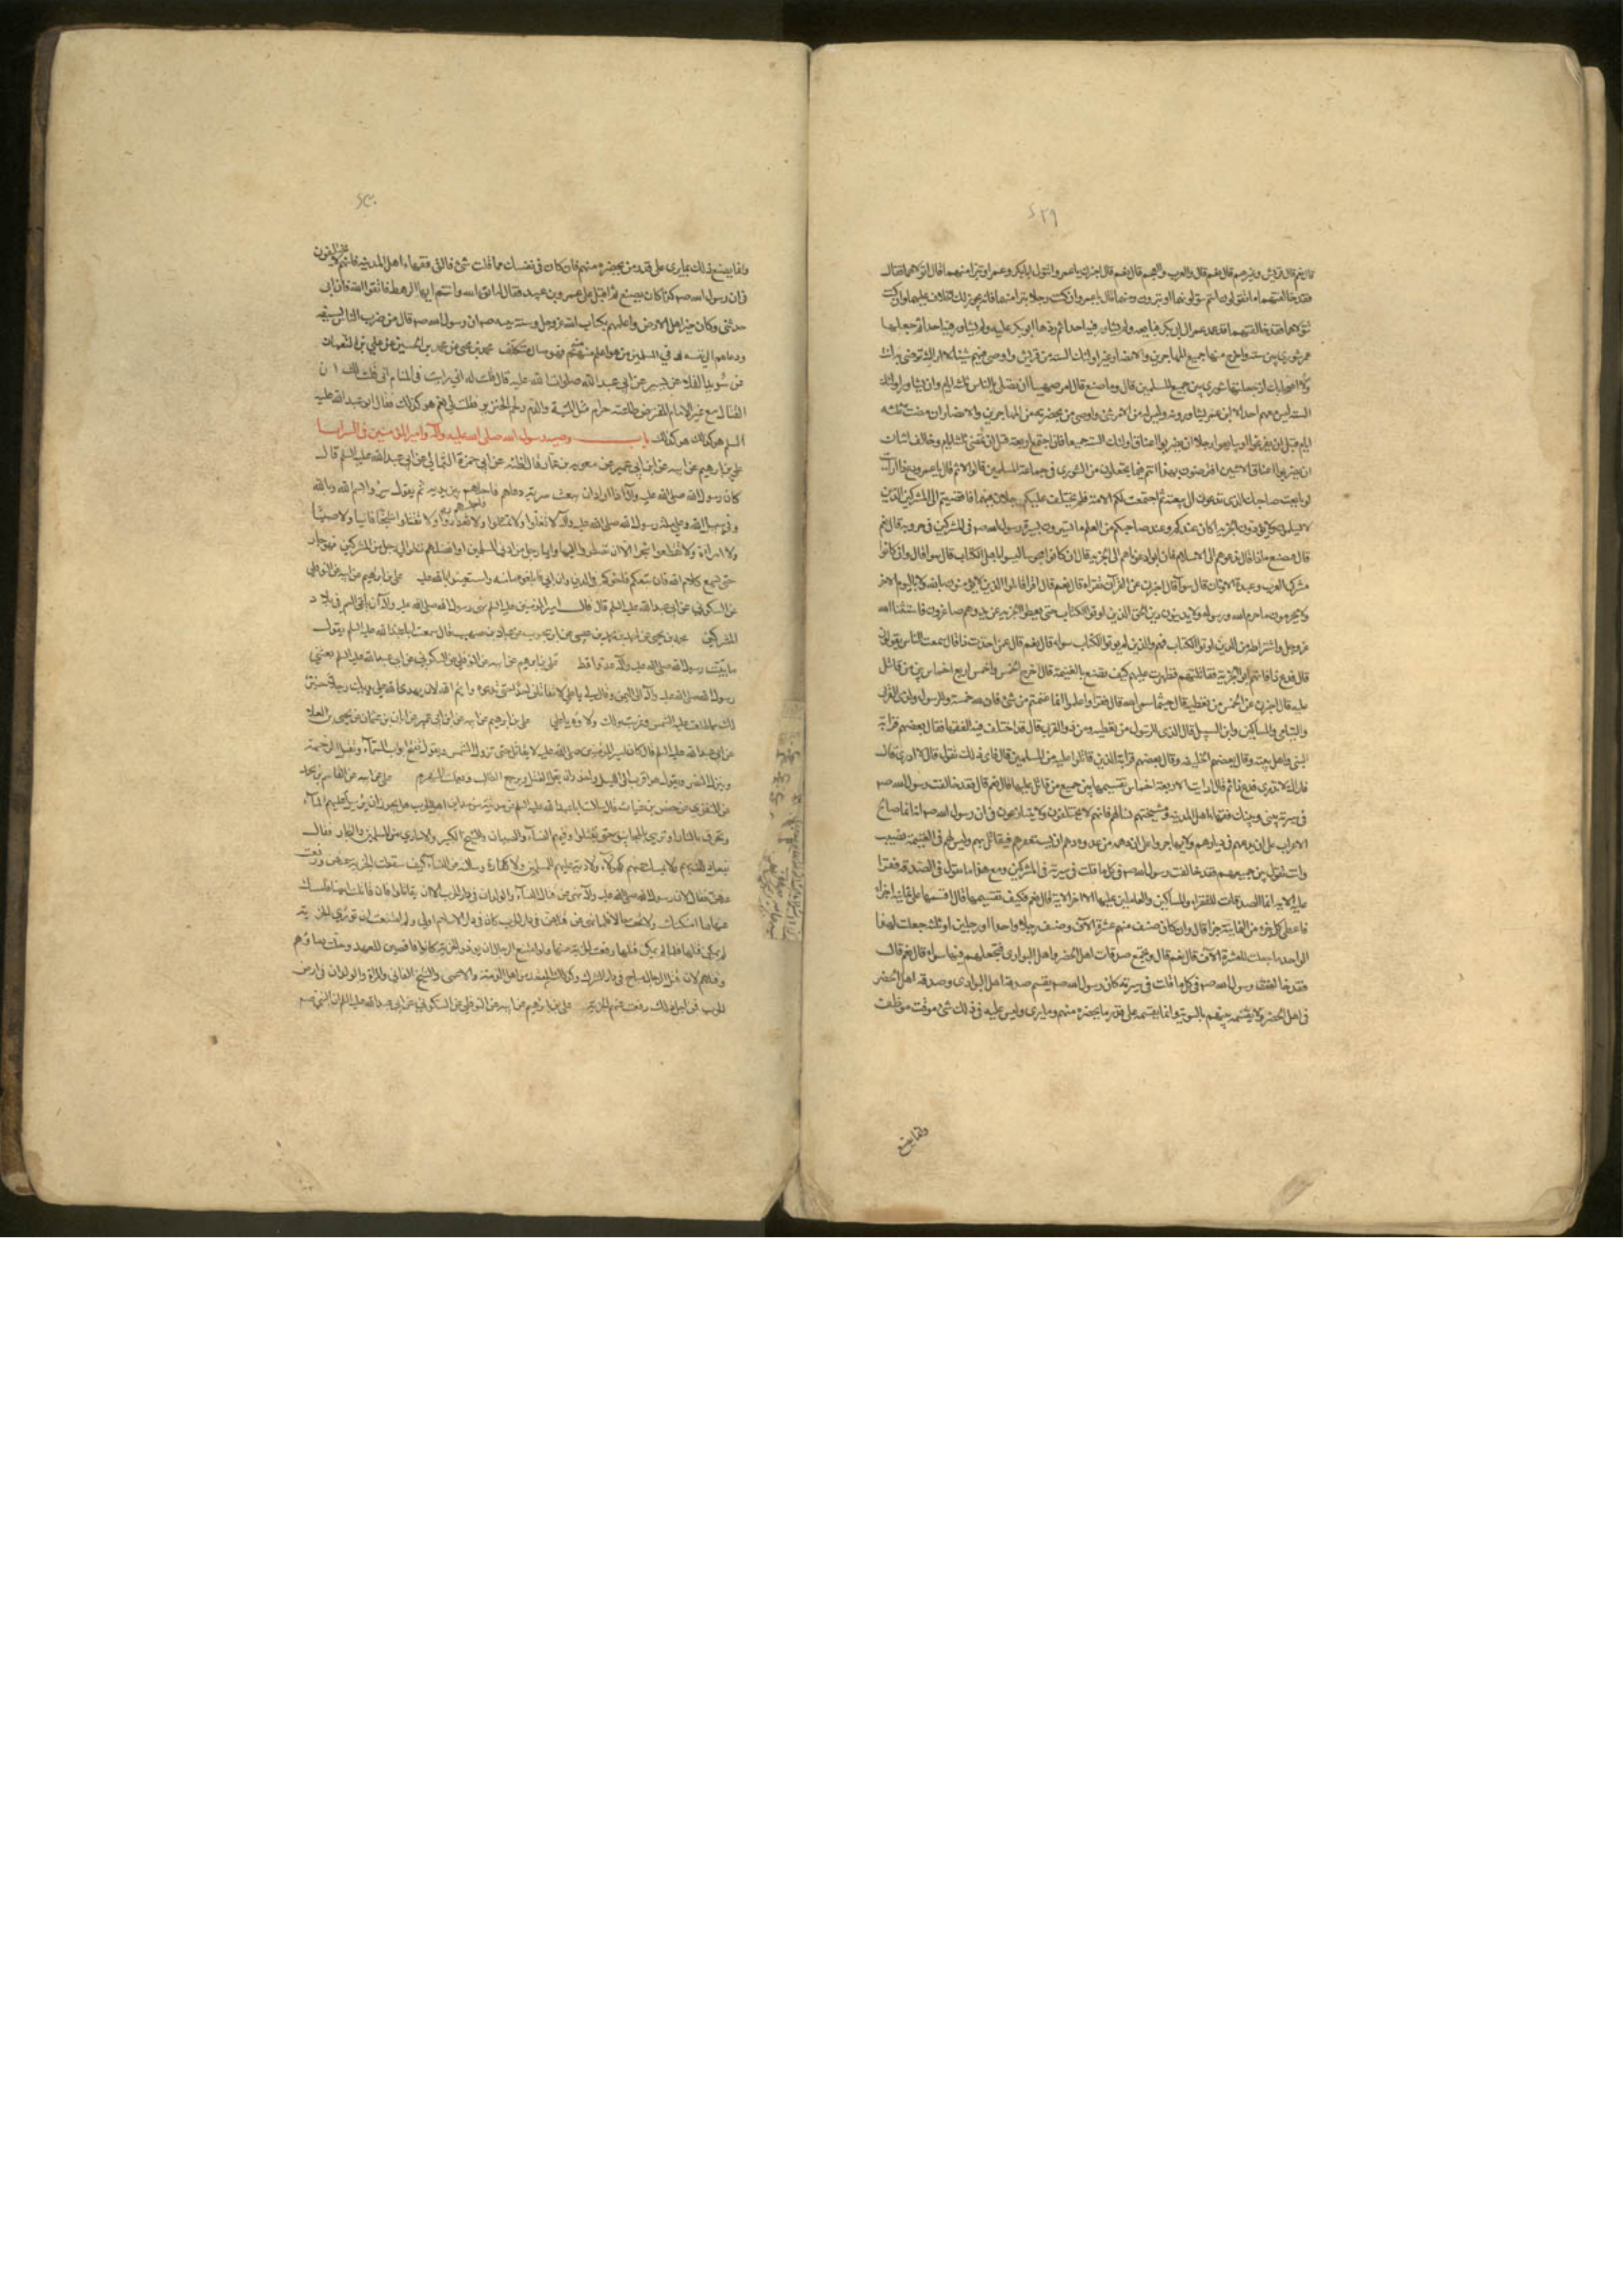 ٤٢٩
قال نعم قال قريش وغيرهم قال نعم قال والعرب والعجم قال نعم قال اخبرني يا عمرو اتتولى ابابكر وعمر او تتبرأ منهما قال اتولاهما فقال
فقد خالفتهما ما تقولون انتم تتولونهما او تبرؤن منهما قال يا عمرو ان كنت رجلا تتبرأ منهما فانه يجوز لك الخلاف عليهما وان كنت
تتولاهما فقد خالفتهما قد عهد عمر الى ابي بكر فبايعه ولم يشاور فيه احدا ثم ردها ابو بكر عليه ولم يشاور فيه احدا ثم جعلها
عمر شورى بين ستة واخرج منها جميع المهاجرين والانصار غير اولئك الستة من قريش واوصى فيهم شيئا لا اراك ترضى به انت
ولا اصحابك اذ جعلتها شورى بين جميع المسلمين قال وما صنع قال امر صهيبا ان يصلي بالناس ثلثة ايام وان يشاور اولئك
الستة ليس معهم احد الا ابن عمر يشاورونه وليس له من الامر شئ واوصى من بحضرته من المهاجرين والانصار ان مضت ثلثة
ايام قبل ان يفرغوا او يبايعوا رجلا ان يضربوا اعناق اولئك الستة جميعا فان اجتمع اربعة قبل ان تمضي ثلثة ايام وخالف اثنان
ان يضربوا اعناق الاثنين افترضون بهذا انتم فيما تجعلون من الشورى في جماعة المسلمين قالوا لا ثم قال يا عمرو دع ذا ارأيت
لو بايعت صاحبك الذي تدعوني الى بيعته ثم اجتمعت لكم الامة فلم يختلف عليكم رجلان فيها فافضتم الى المشركين الذين
لا يسلمون ولا يؤدون الجزية اكان عندكم وعند صاحبكم من العلم ما تسيرون بسيرة رسول الله صم في المشركين في حروبه قال نعم
قال فتصنع ماذا قال ندعوهم الى الاسلام فان ابوا دعوناهم الى الجزية قال ان كانوا مجوسا ليسوا باهل الكتاب قال سواء قال وان كانوا
مشركي العرب وعبدة الاوثان قال سواء قال اخبرني عن القرآن تقرأه قال نعم قال اقرأ قاتلوا الذين لا يؤمنون بالله ولا باليوم الآخر
ولا يحرمون ما حرم الله ورسوله ولا يدينون دين الحق من الذين اوتوا الكتاب حتى يعطوا الجزية عن يد وهم صاغرون فاستثناء الله
عز وجل واشتراطه من الذين اوتوا الكتاب فهم والذين لم يؤتوا الكتاب سواء قال نعم قال عمن اخذت ذا قال سمعت الناس يقولون
قال فدع ذا فان هم ابوا الجزية فقاتلتهم فظهرت عليهم كيف تصنع بالغنيمة قال اخرج الخمس واقسم اربعة اخماس بين من قاتل
عليه قال اخبرني عن الخمس من تعطيه قال حيثما سمى الله قال فقرأ واعلموا انما غنمتم من شئ فان لله خمسه وللرسول ولذي القربى
واليتامى والمساكين وابن السبيل قال الذي للرسول من تعطيه ومن ذو القربى قال قد اختلف فيه الفقهاء فقال بعضهم قرابة
النبي واهل بيته وقال بعضهم الخليفة وقال بعضهم قرابة الذين قاتلوا عليه من المسلمين قال فاي ذلك تقول قال لا ادري قال
فاراك لا تدري فدع ذا ثم قال ارأيت الاربعة اخماس تقسمها بين جميع من قاتل عليها قال نعم قال فقد خالفت رسول الله صم
في سيرته بيني وبينك فقهاء اهل المدينة ومشيختهم فسألهم فانهم لا يختلفون ولا يتنازعون في ان رسول الله صم انما صالح
الاعراب على ان يدعهم في ديارهم ولا يهاجروا على ان دهمه من عدوه دهم ان يستنفرهم فيقاتل بهم وليس لهم في الغنيمة نصيب
وانت تقول بين جميعهم فقد خالفت رسول الله صم في كل ما قلت في سيرته في المشركين ومع هذا ما تقول في الصدقة فقرأ
عليه الآية انما الصدقات للفقراء والمساكين والعاملين عليها الى آخر الآية قال نعم فكيف تقسمها قال اقسمها على ثمانية اجزاء
فاعطي كل جزء من الثمانية جزءا قال وان كان صنف منهم عشرة آلاف وصنف رجلا واحدا او رجلين او ثلثة جعلت لهذا
الواحد ما جعلت للعشرة آلاف قال نعم قال وتجمع صدقات اهل الحضر واهل البوادي فتجعلهم فيها سواء قال نعم قال
فقد خالفت رسول الله صم في كل ما قلت في سيرته كان رسول الله صم يقسم صدقة اهل البوادي وصدقة اهل الحضر
في اهل الحضر ولا يقسمه بينهم بالسوية وانما يقسمه على قدر ما يحضره منهم وما يرى وليس عليه في ذلك شئ موقت موظف
وانما يصنع
٤٣٠
وانما يصنع ذلك بما يرى على قدر من يحضره منهم فان كان في نفسك مما قلت شئ فالق فقهاء اهل المدينة فانهم لا يختلفون
في ان رسول الله صم كذا كان يصنع ثم اقبل على عمرو بن عبيد فقال له اتق الله وانتم ايها الرهط فاتقوا الله فان ابي
حدثني وكان خير اهل الارض واعلمهم بكتاب الله عز وجل وسنة نبيه صم ان رسول الله صم قال من ضرب الناس بسيفه
ودعاهم الى نفسه وفي المسلمين من هو اعلم منه فهو ضال متكلف محمد بن يحيى عن محمد بن الحسين عن علي بن النعمان
عن سويد القلا عن بشير عن ابي عبد الله صلوات الله عليه قال قلت له اني رايت في المنام اني قلت لك ان
القتال مع غير الامام المفترض طاعته حرام مثل الميتة والدم ولحم الخنزير فقلت لي نعم هو كذلك فقال ابو عبد الله عليه
السلم هو كذلك هو كذلك باب وصية رسول الله صلى الله عليه وآله وامير المؤمنين في السرايا
علي بن ابرهيم عن ابيه عن ابن ابي عمير عن معوية بن عمار قال اظنه عن ابي حمزة الثمالي عن ابي عبد الله عليه السلم قال
كان رسول الله صلى الله عليه وآله اذا اراد ان يبعث سرية دعاهم فاجلسهم بين يديه ثم يقول سيروا بسم الله وبالله
وفي سبيل الله وعلى ملة رسول الله صلى الله عليه وآله لا تغلوا ولا تمثلوا ولا تغدروا ولا تقتلوا شيخا فانيا ولا صبيا
ولا امرأة ولا تقطعوا شجرا الا ان تضطروا اليها وايما رجل من ادنى المسلمين او افضلهم نظر الى رجل من المشركين فهو جار
حتى يسمع كلام الله فان تبعكم فاخوكم في الدين وان ابى فابلغوه مأمنه واستعينوا بالله عليه علي بن ابرهيم عن ابيه عن النوفلي
عن السكوني عن ابي عبد الله عليه السلم قال قال امير المؤمنين عليه السلم نهى رسول الله صلى الله عليه وآله ان يلقى السم في بلاد
المشركين محمد بن يحيى عن احمد بن محمد بن عيسى عن ابن محبوب عن عباد بن صهيب قال سمعت ابا عبد الله عليه السلم يقول
ما بيت رسول الله صلى الله عليه وآله عدوا قط علي بن ابرهيم عن ابيه عن النوفلي عن السكوني عن ابي عبد الله عليه السلم بعثني
رسول الله صلى الله عليه وآله الى اليمن وقال لي يا علي لا تقاتلن احدا حتى تدعوه وايم الله لان يهدي الله على يديك رجلا خير
لك مما طلعت عليه الشمس وغربت ولك ولاؤه يا علي علي بن ابرهيم عن ابيه عن ابن ابي عمير عن ابان بن عثمان عن يحيى بن العلاء
عن ابي عبد الله عليه السلم قال كان امير المؤمنين صلى الله عليه لا يقاتل حتى تزول الشمس ويقول تفتح ابواب السماء وتقبل الرحمة
وينزل النصر ويقول هو اقرب الى الليل واجدر ان يقل القتل ويرجع الطالب ويفلت المنهزم علي عن ابيه عن القاسم بن محمد
عن المنقري عن حفص بن غياث قال سالت ابا عبد الله عليه السلم عن مدينة من مداين اهل الحرب هل يجوز ان يرسل عليهم الماء
وتحرق بالنار او ترمى بالمجانيق حتى يقتلوا وفيهم النساء والصبيان والشيخ الكبير والاسارى من المسلمين والتجار فقال
يفعل ذلك بهم ولا يمسك عنهم لهؤلاء ولا دية عليهم للمسلمين ولا كفارة وسالته عن النساء كيف سقطت الجزية عنهن ورفعت
عنهن فقال لان رسول الله صلى الله عليه وآله نهى عن قتال النساء والولدان في دار الحرب الا ان يقاتلوا فان قاتلت ايضا فامسك
عنها ما امكنك ولم تخف خللا فلما نهى عن قتلهن في دار الحرب كان في دار الاسلام اولى ولو امتنعت ان تؤدي الجزية
لم يمكن قتلها فلما لم يمكن قتلها رفعت الجزية عنها ولو امتنع الرجال ان يؤدوا الجزية كانوا ناقضين للعهد وحلت دماؤهم
وقتلهم لان قتل الرجال مباح في دار الشرك وكذلك المقعد من اهل الذمة والاعمى والشيخ الفاني والمرأة والولدان في ارض
الحرب فمن اجل ذلك رفعت عنهم الجزية علي بن ابرهيم عن ابيه عن النوفلي عن السكوني عن ابي عبد الله عليه السلم ان النبي صم